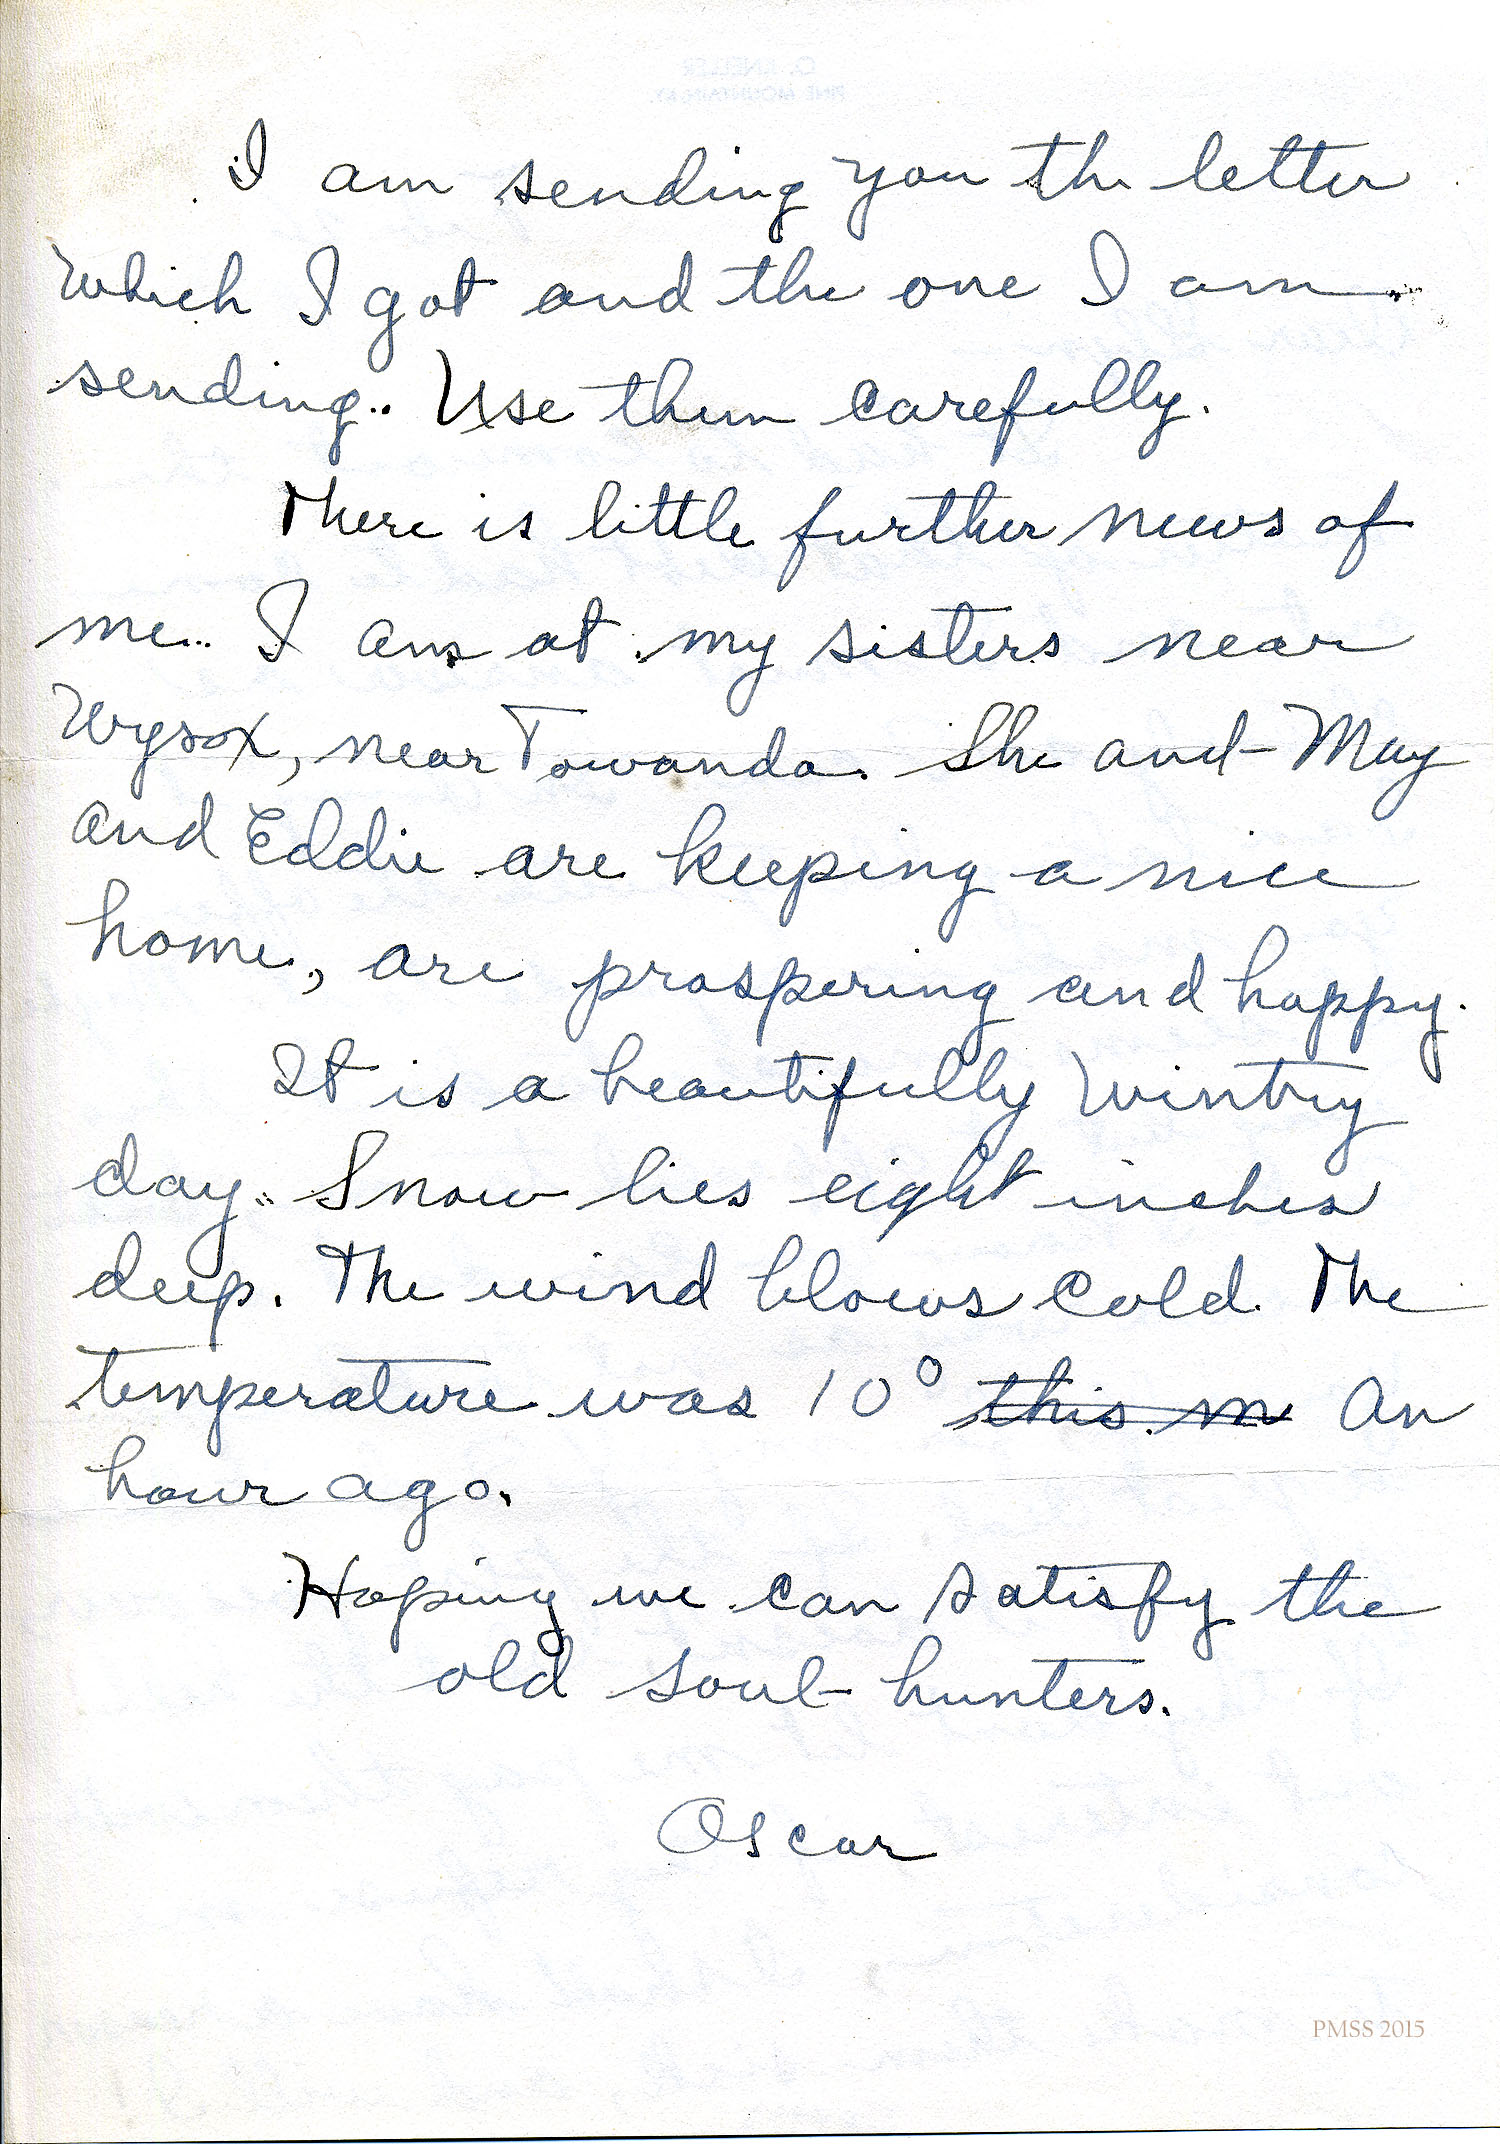 I am sending you the letter
which I got and the one I am
sending. Use them carefully.
There is little further news of
me. I am at my sisters near
Wysox, near Towanda. She and May
and Eddie are keeping a nice
home, are prospering and happy.
It is a beautifully wintry
day. Snow lies eight inches
deep. The wind blows cold. The
temperature was 10° this m An
hour ago.
Hoping we can satisfy the
old soul hunters.
Oscar
PMSS 2015